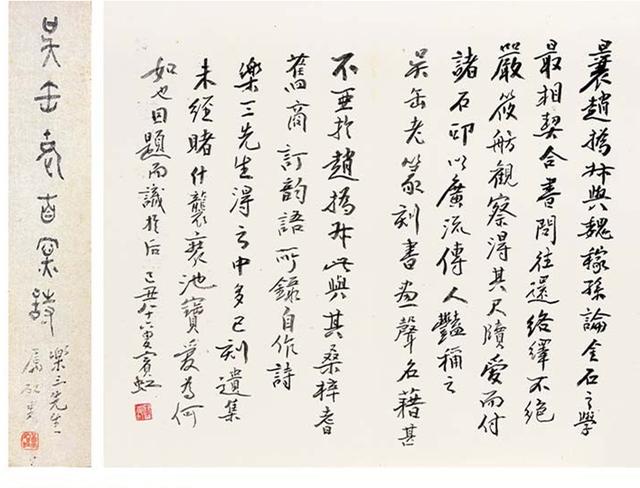 曩趙撝叔與魏稼孫論金石之學
最相契合書問往還絡繹不絕
嚴筱舫觀察得其尺牘愛而付
諸石印以廣流傳人豔稱之
吴缶老篆刻書畫聲名藉甚
不亞於趙撝叔此與其桑梓耆
舊商訂韵語所錄自作詩
樂三先生得之中多已刻遺集
未經賭什襲裒池寶愛為何
如也因題而識於后 己丑八十六叟賓虹
吳缶老自寫詩
樂三先生
屬